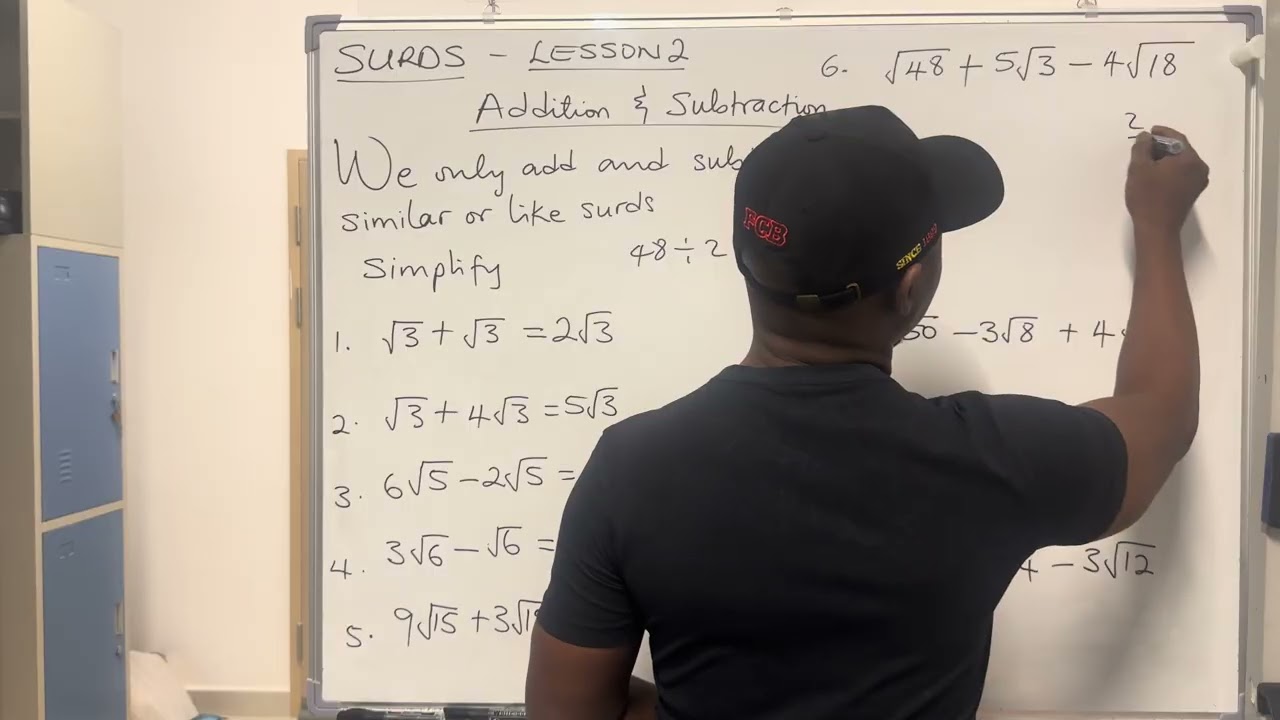 SURDS - LESSON 2
Addition & Subtraction
We only add and
similar or like surds
Simplify
48 ÷ 2
1. √3 + √3 = 2√3
2. √3 + 4√3 = 5√3
3. 6√5 - 2√5 =
4. 3√6 - √6 =
5. 9√15 + 3
6. √48 + 5√3 - 4√18
2
- 3√8 + 4
- 3√12
FCB
SINCE